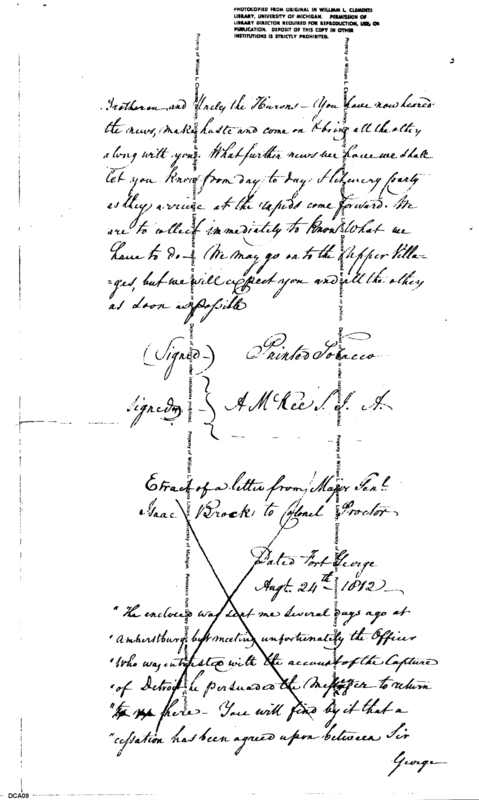 PHOTOCOPIED FROM ORIGINAL IN WILLIAM L. CLEMENTS
LIBRARY, UNIVERSITY OF MICHIGAN. PERMISSION OF
LIBRARY DIRECTOR REQUIRED FOR REPRODUCTION, USE, OR
PUBLICATION. DEPOSIT OF THIS COPY IN OTHER
INSTITUTIONS IS STRICTLY PROHIBITED.
and Uncles the Hurons - You have now heared
the news, make haste and come on & bring all the others
along with you. What further news we have we shall
let you know from day to day & Every party
as they arrive at the rapids come forward. We
are to collect immediately to know what we
have to do - We may go on to the Upper Villa-
=ges, but we will expect you and all the others
as soon as possible
(Signed) Painted Tobacco
Signed A McKee S. I. A.
Extract of a letter from Major Genl.
Isaac Brock to Colonel Proctor
Dated Fort George
Augt. 24th 1812
"The enclosed was sent me several days ago at
"Amherstburg but meeting unfortunately the Officer
"Who was entrusted with the account of the Capture
"of Detroit he persuaded the Messenger to return
"here - You will find by it that a
"cessation has been agreed upon between Sir
George
DCA09